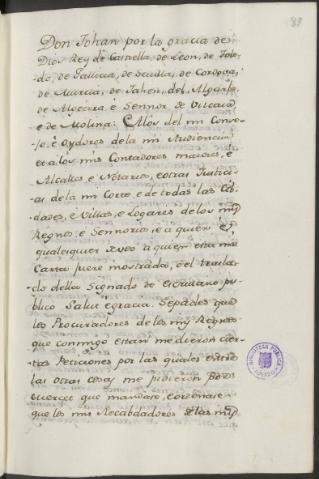 88
Don Johan por la gracia de
Dios Rey de Castiella, de Leon, de Tole-
do, de Gallicia, de Sevilla, de Cordova,
de Murcia, de Jahen, del Algarbe
de Algecira, è Sennor de Vizcaya,
e de Molina: Alos del mi Conse-
jo, è Oydores de la mi Audiencia
et a los mis Contadores maiores, e
Alcalles e Notarios, e otras Justici-
as de la mi Corte e de todas las Cib-
dades, e Villas, e Logares delos mis
Regnos, è Sennorios, è a quien è,
qualesquier devos a quien esta mi
Carta fuere mostrada, o el trasla-
do della Signado de Escribano pu-
blico Salut è gracia. Sepades que
los Procuradores de los mis Regnos
que conmigo estan me dieron cier-
tas Peticiones por las quales entre
las otras cosas me pidieron por
que mandase, è ordenase
que los mis Recabdadores de las mis
BIBLIOTECA PUBLICA
TOLEDO